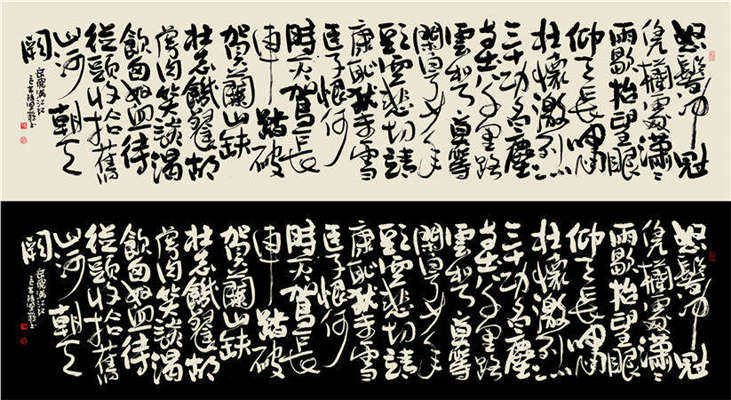 怒髮沖冠
凭闌處瀟瀟
雨歇抬望眼
仰天長嘯
壯懷激烈
三十功名塵
與土八千里路
雲和月莫等
閑白了少年
頭空悲切靖
康恥猶未雪
臣子恨何
時滅駕長
車踏破
賀蘭山缺
壯志飢餐胡
虜肉笑談渴
飲匈奴血待
從頭收拾舊
山河朝天
闕
岳飛滿江紅
怒髮沖冠
凭闌處瀟瀟
雨歇抬望眼
仰天長嘯
壯懷激烈
三十功名塵
與土八千里路
雲和月莫等
閑白了少年
頭空悲切靖
康恥猶未雪
臣子恨何
時滅駕長
車踏破
賀蘭山缺
壯志飢餐胡
虜肉笑談渴
飲匈奴血待
從頭收拾舊
山河朝天
闕
岳飛滿江紅